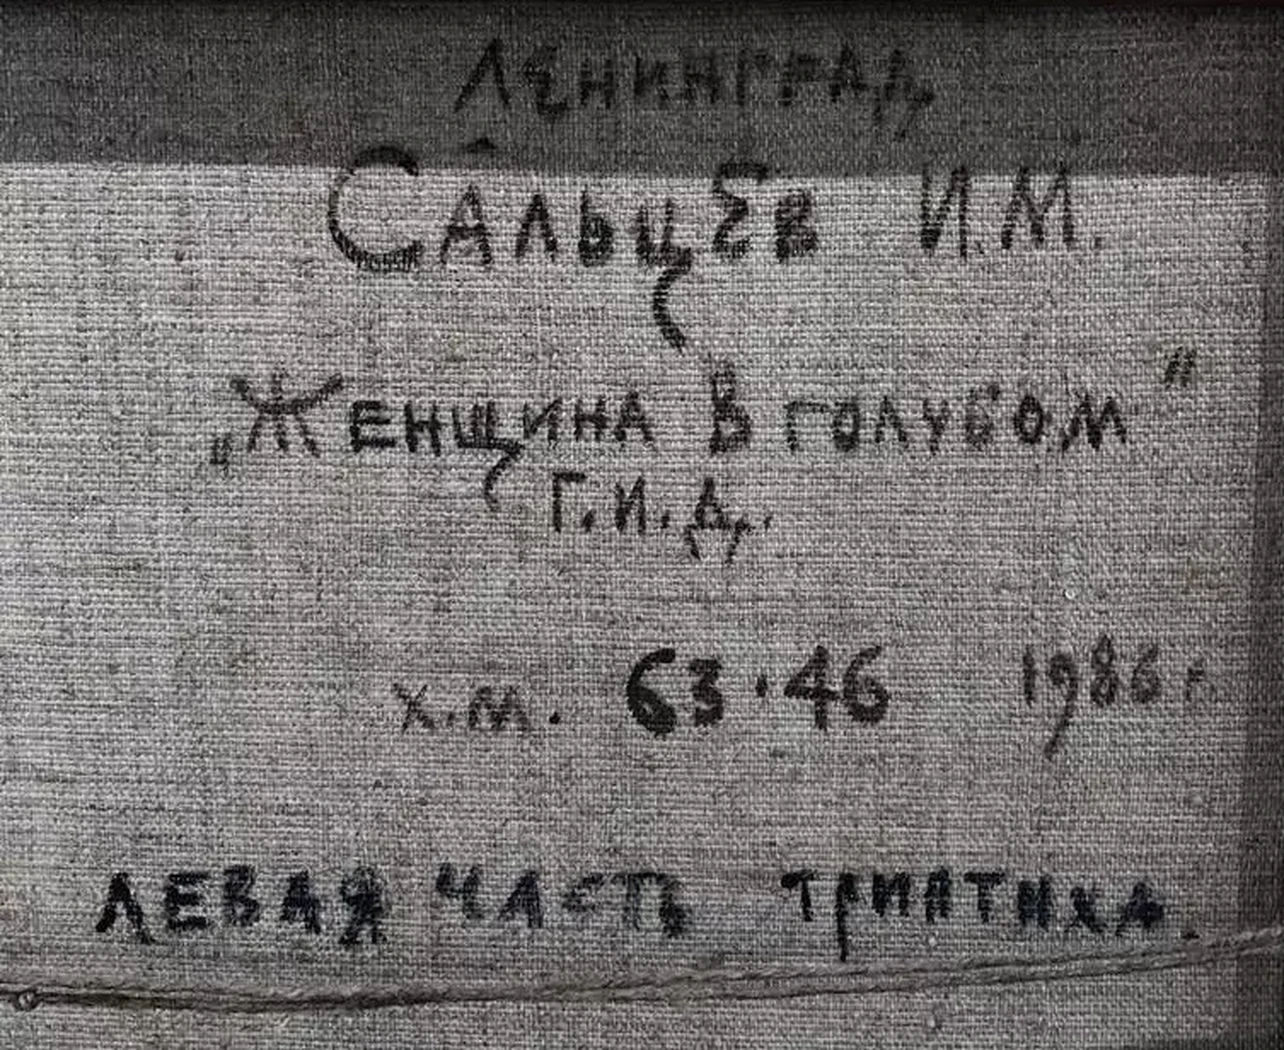 ЛЕНИНГРАД
САЛЬЦЕВ И.М.
„ЖЕНЩИНА В ГОЛУБОМ"
Г.И.Д.
х.м. 63·46 1986 г
ЛЕВАЯ ЧАСТЬ ТРИПТИХА.